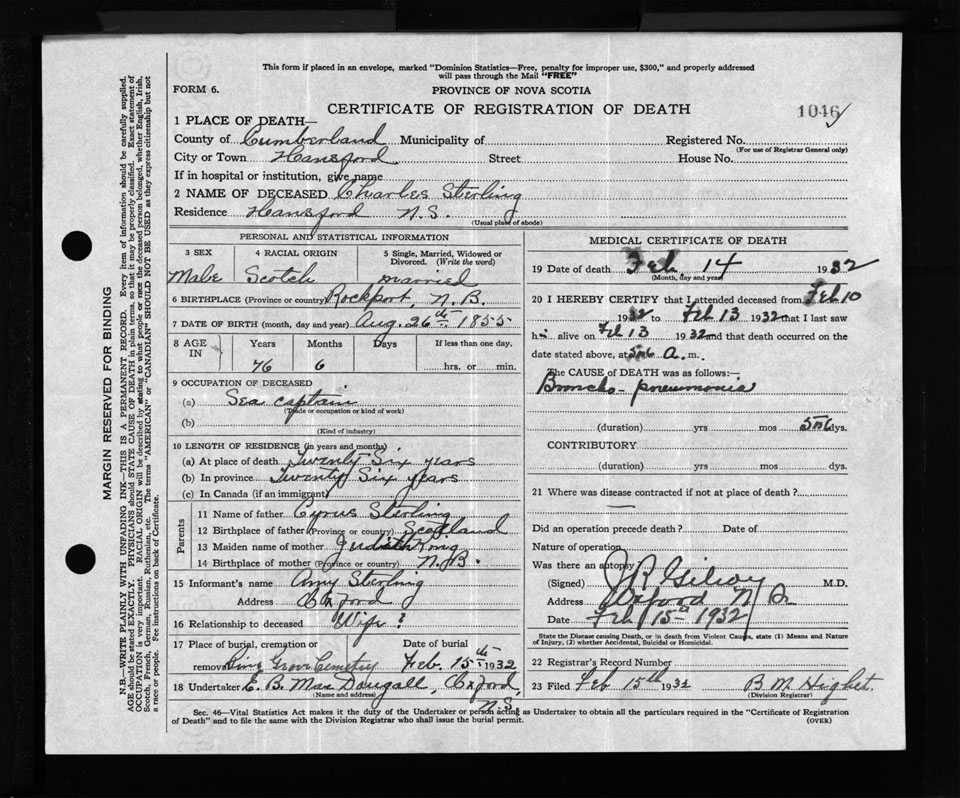 This form if placed in an envelope, marked "Dominion Statistics—Free, penalty for improper use, $300," and properly addressed
will pass through the Mail "FREE"
FORM 6.
PROVINCE OF NOVA SCOTIA
CERTIFICATE OF REGISTRATION OF DEATH
1046
1 PLACE OF DEATH—
County of Cumberland Municipality of Registered No.
(For use of Registrar General only)
City or Town Hansford Street House No.
If in hospital or institution, give name
2 NAME OF DECEASED Charles Sterling
Residence Hansford N.S.
(Usual place of abode)
PERSONAL AND STATISTICAL INFORMATION
3 SEX 4 RACIAL ORIGIN 5 Single, Married, Widowed or
Divorced. (Write the word)
Male Scotch married
6 BIRTHPLACE (Province or country) Rockport, N.B.
7 DATE OF BIRTH (month, day and year) Aug. 26th 1855
8 AGE IN Years Months Days If less than one day,
76 6 hrs. or min.
9 OCCUPATION OF DECEASED
(a) Sea captain
(Trade or occupation or kind of work)
(b)
(Kind of industry)
10 LENGTH OF RESIDENCE (in years and months)
(a) At place of death Twenty Six years
(b) In province Twenty Six years
(c) In Canada (if an immigrant)
Parents
11 Name of father Cyrus Sterling
12 Birthplace of father (Province or country) Scotland
13 Maiden name of mother Judith
14 Birthplace of mother (Province or country) N.B.
15 Informant's name Amy Sterling
Address Oxford
16 Relationship to deceased Wife
17 Place of burial, cremation or Date of burial
removal Pine Grove Cemetery Feb. 15th 1932
18 Undertaker E. B. MacDougall, Oxford,
(Name and address) N.S.
MEDICAL CERTIFICATE OF DEATH
19 Date of death Feb 14 1932
(Month, day and year)
20 I HEREBY CERTIFY that I attended deceased from Feb 10
1932 to Feb 13 1932 that I last saw
h alive on Feb 13 1932 and that death occurred on the
date stated above, at a. m.
The CAUSE OF DEATH was as follows:
Broncho-pneumonia
(duration) yrs mos dys.
CONTRIBUTORY
(duration) yrs mos dys.
21 Where was disease contracted if not at place of death?
Did an operation precede death? Date of
Nature of operation
Was there an autopsy
(Signed) J R Gilroy M.D.
Address Oxford N S
Date Feb 15th 1932
State the Disease causing Death, or in death from Violent Causes, state (1) Means and Nature
of Injury, (2) whether Accidental, Suicidal or Homicidal.
22 Registrar's Record Number
23 Filed Feb 15th 1932 B M Hight.
(Division Registrar)
Sec. 46—Vital Statistics Act makes it the duty of the Undertaker or person acting as Undertaker to obtain all the particulars required in the "Certificate of Registration
of Death" and to file the same with the Division Registrar who shall issue the burial permit.
(OVER)
MARGIN RESERVED FOR BINDING
N.B.—WRITE PLAINLY WITH UNFADING INK—THIS IS A PERMANENT RECORD. Every item of information should be carefully supplied.
AGE should be stated EXACTLY. PHYSICIANS should STATE CAUSE OF DEATH in plain terms, so that it may be properly classified. Exact statement of
OCCUPATION is very important. RACIAL ORIGIN will be described by stating to what people or race the deceased person belonged, whether English, Irish,
Scotch, French, German, Russian, Ruthenian, etc. The terms "AMERICAN" or "CANADIAN" SHOULD NOT BE USED as they express citizenship but not
a race or people. See instructions on back of Certificate.